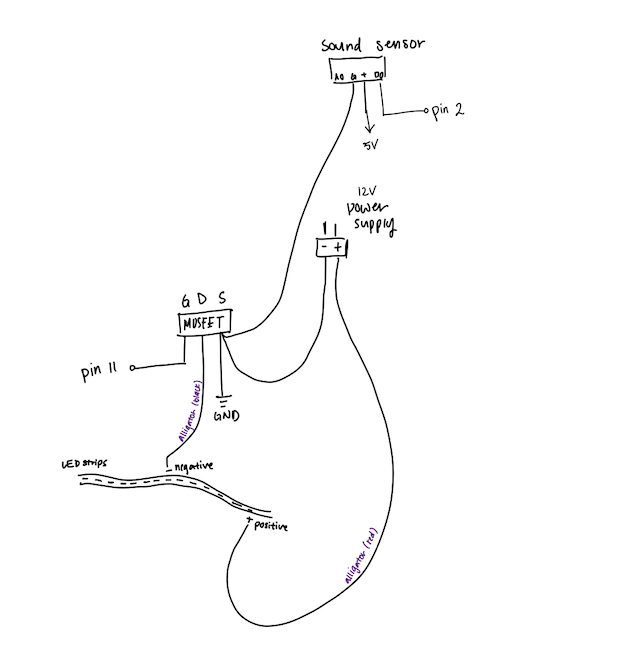 Sound sensor
A0 G + D0
pin 2
5V
12V
power
supply
- +
G D S
MOSFET
pin 11
GND
Alligator (black)
LED strips
- negative
+ positive
Alligator (red)